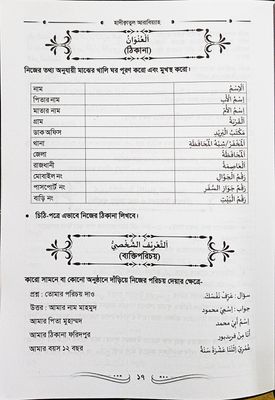 মাদীক্বাতুল আরাবিয়্যাহ
اَلْعُنْوَانُ
(ঠিকানা)
নিজের তথ্য অনুযায়ী মাঝের খালি ঘর পূরণ করো এবং মুখস্থ করো।
নাম اَلْإِسْمُ
পিতার নাম اِسْمُ الْأَبِ
মাতার নাম اِسْمُ الْأُمِّ
গ্রাম اَلْقَرْيَةُ
ডাক অফিস مَكْتَبُ الْبَرِيْدِ
থানা اَلْمَخْفَرُ/شُعْبَةُ الْمُحَافَظَةِ
জেলা اَلْمُحَافَظَةُ
রাজধানী اَلْعَاصِمَةُ
মোবাইল নং رَقْمُ الْجَوَّالِ
পাসপোর্ট নং رَقْمُ جَوَازِ السَّفَرِ
বাড়ি নং رَقْمُ الْبَيْتِ
• চিঠি-পত্রে এভাবে নিজের ঠিকানা লিখবে।
اَلتَّعْرِيْفُ الشَّخْصِيُّ
(ব্যক্তিপরিচয়)
কারো সামনে বা কোনো অনুষ্ঠানে দাঁড়িয়ে নিজের পরিচয় দেয়ার ক্ষেত্রে-
প্রশ্ন : তোমার পরিচয় দাও سؤال: عَرِّفْ نَفْسَكَ
উত্তর : আমার নাম মাহমুদ جواب: إِسْمِيْ محمود
আমার পিতা মুহাম্মদ إِسْمُ أَبِيْ محمد
আমার ঠিকানা ফরিদপুর أَنَا مِنْ فريدبور
আমার বয়স ১২ বছর عُمْرِيْ إِثْنَتَا عَشْرَةَ سَنَةً
১৭